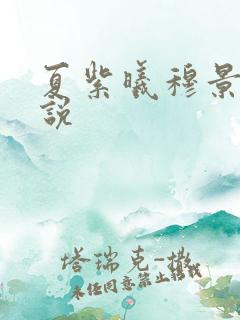 夏紫曦穆景
說
塔瑞克-撒
未经同意禁止转载